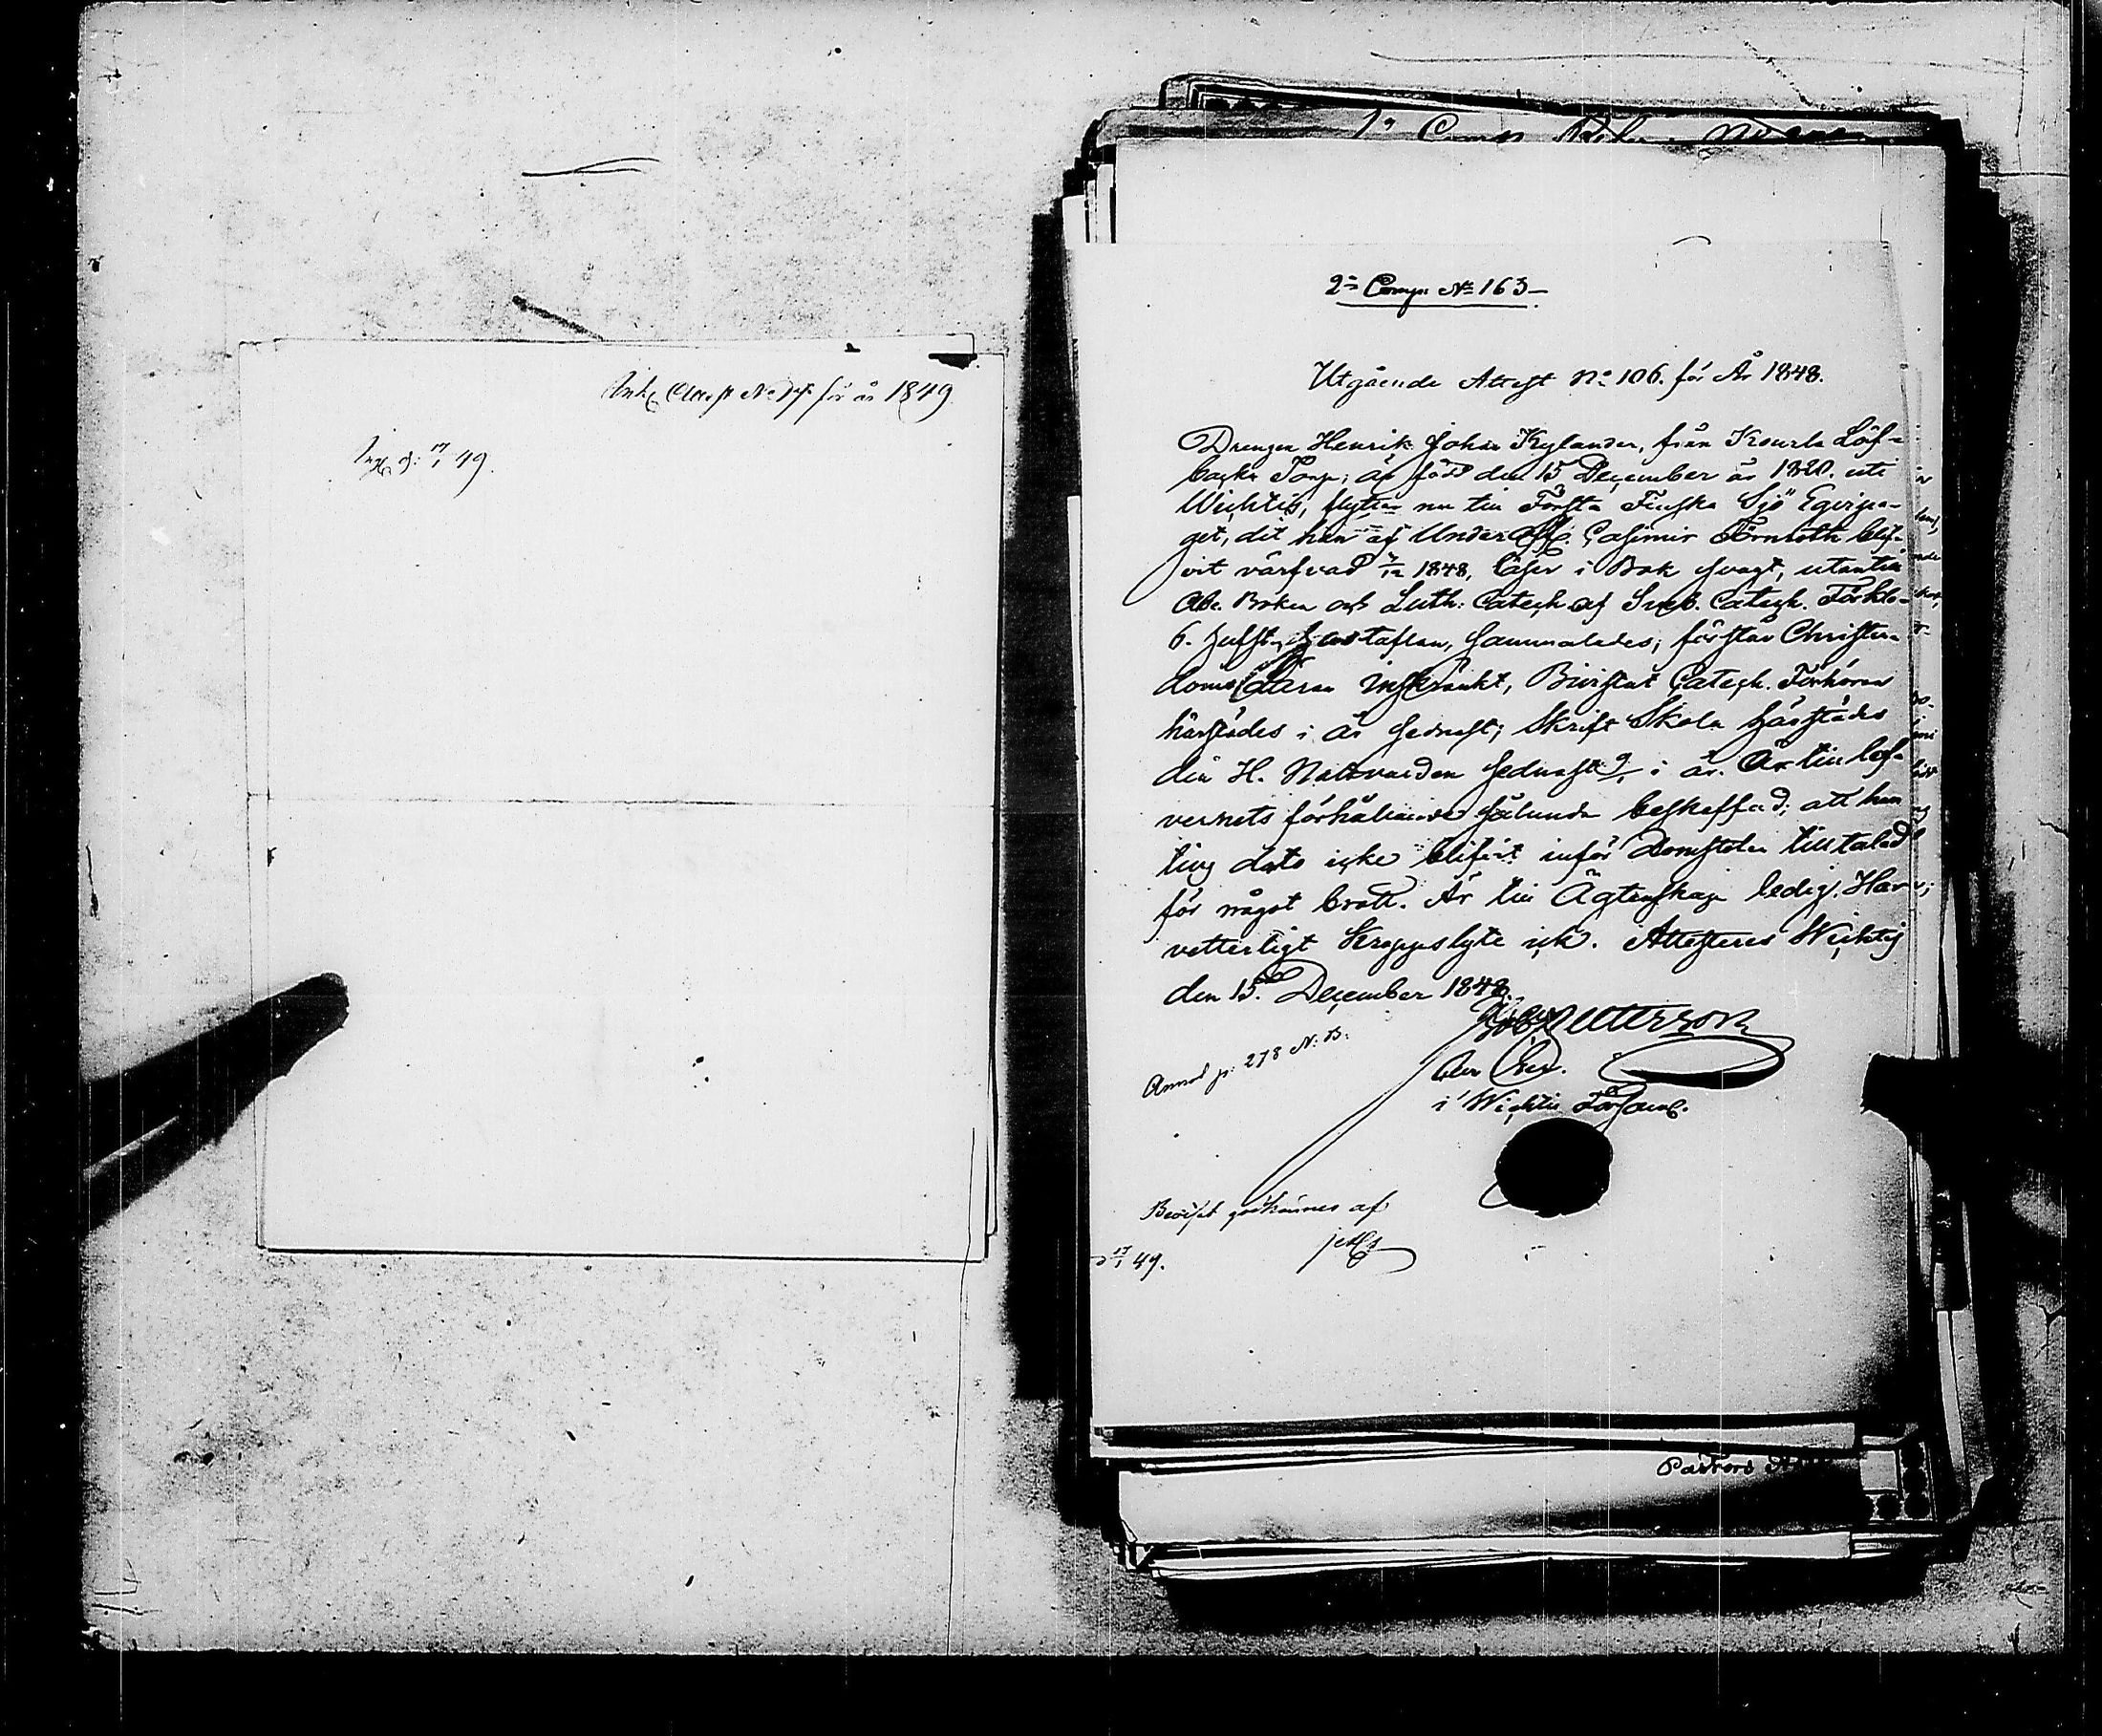 Attest No för år 1849
d: 17/1 49.
2a Comp. No 163
Utgående Attest No 106. för År 1848.
Drengen Henrik Johan Kylander, från Kourla Löf-
backa Torp; är född den 15 December år 1828. uti
Wichtis, flyttar nu till Första Finska Sjö Eqvipa-
get, dit han af Under Off. Casimir Törnroth blif-
vit värfvad 7/12 1848, läser i Bok svagt, utantill
Abc Boken och Luth: Catech. af Sveb. Catech. Förkla-
6. Hufst. Hustaflan, sammaledes; förstår Christen-
doms Läran inskränkt, Bivistat Catech. Förhören
härstädes i år sednast; Skrift Skola härstädes
den H. Nattvarden sednast i år. Är till lef-
vernets förhållande sålunda beskaffad; att han
till dato icke blifvit inför Domstolen tilltalad
för något brott. Är till Ägtenskap ledig. Har
vetterligt Kroppslyte ick. Attesteras Wichtis
den 15de December 1848.
Petterson
i Wichtis Församl.
Annot p: 278 N: B:
Beviset godkännes af
17/1 49.
Pastors